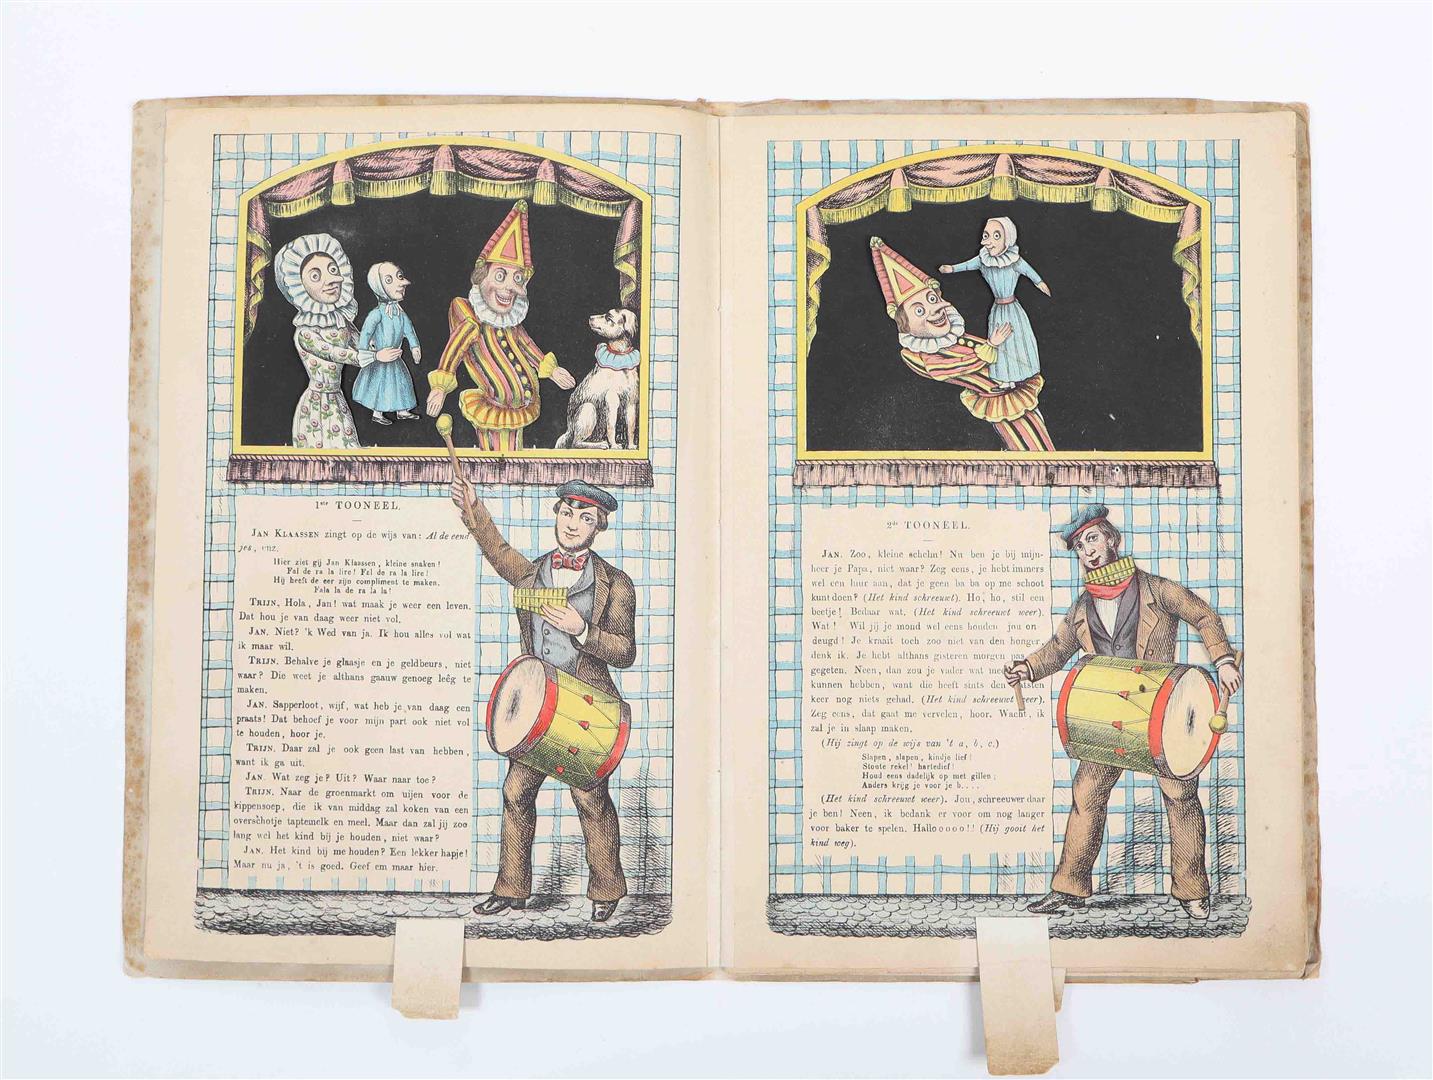 1ste TOONEEL.
JAN KLAASSEN zingt op de wijs van: Al de eend
jes, enz.
Hier ziet gij Jan Klaassen, kleine snaken!
Fal de ra la lire! Fal de ra la lire!
Hij heeft de eer zijn compliment te maken.
Fala la de ra la la!
TRIJN. Hola, Jan! wat maak je weer een leven.
Dat hou je van daag weer niet vol.
JAN. Niet? 'k Wed van ja. Ik hou alles vol wat
ik maar wil.
TRIJN. Behalve je glaasje en je geldbeurs, niet
waar? Die weet je althans gaauw genoeg leêg te
maken.
JAN. Sapperloot, wijf, wat heb je van daag een
praats! Dat behoef je voor mijn part ook niet vol
te houden, hoor je.
TRIJN. Daar zal je ook geen last van hebben,
want ik ga uit.
JAN. Wat zeg je? Uit? Waar naar toe?
TRIJN. Naar de groenmarkt om uijen voor de
kippensoep, die ik van middag zal koken van een
overschotje taptemelk en meel. Maar dan zal jij zoo
lang wel het kind bij je houden, niet waar?
JAN. Het kind bij me houden? Een lekker hapje!
Maar nu ja, 't is goed. Geef em maar hier.
2de TOONEEL.
JAN. Zoo, kleine schelm! Nu ben je bij mijn-
heer je Papa, niet waar? Zeg eens, je hebt immers
wel een uur aan, dat je geen ba ba op me schoot
kunt doen? (Het kind schreeuwt). Ho, ho, stil een
beetje! Bedaar wat. (Het kind schreeuwt weer).
Wat! Wil jij je mond wel eens houden jou on-
deugd! Je kraait toch zoo niet van den honger,
denk ik. Je hebt althans gisteren morgen pas
gegeten. Neen, dan zou je vader wat me
kunnen hebben, want die heeft sints den laatsten
keer nog niets gehad. (Het kind schreeuwt weer).
Zeg eens, dat gaat me vervelen, hoor. Wacht, ik
zal je in slaap maken.
(Hij zingt op de wijs van 't a, b, c.)
Slapen, slapen, kindje lief!
Stoute rekel! hartedief!
Houd eens dadelijk op met gillen;
Anders krijg je voor je b....
(Het kind schreeuwt weer). Jou, schreeuwer daar
je ben! Neen, ik bedank er voor om nog langer
voor baker te spelen. Hallooooo!! (Hij gooit het
kind weg).